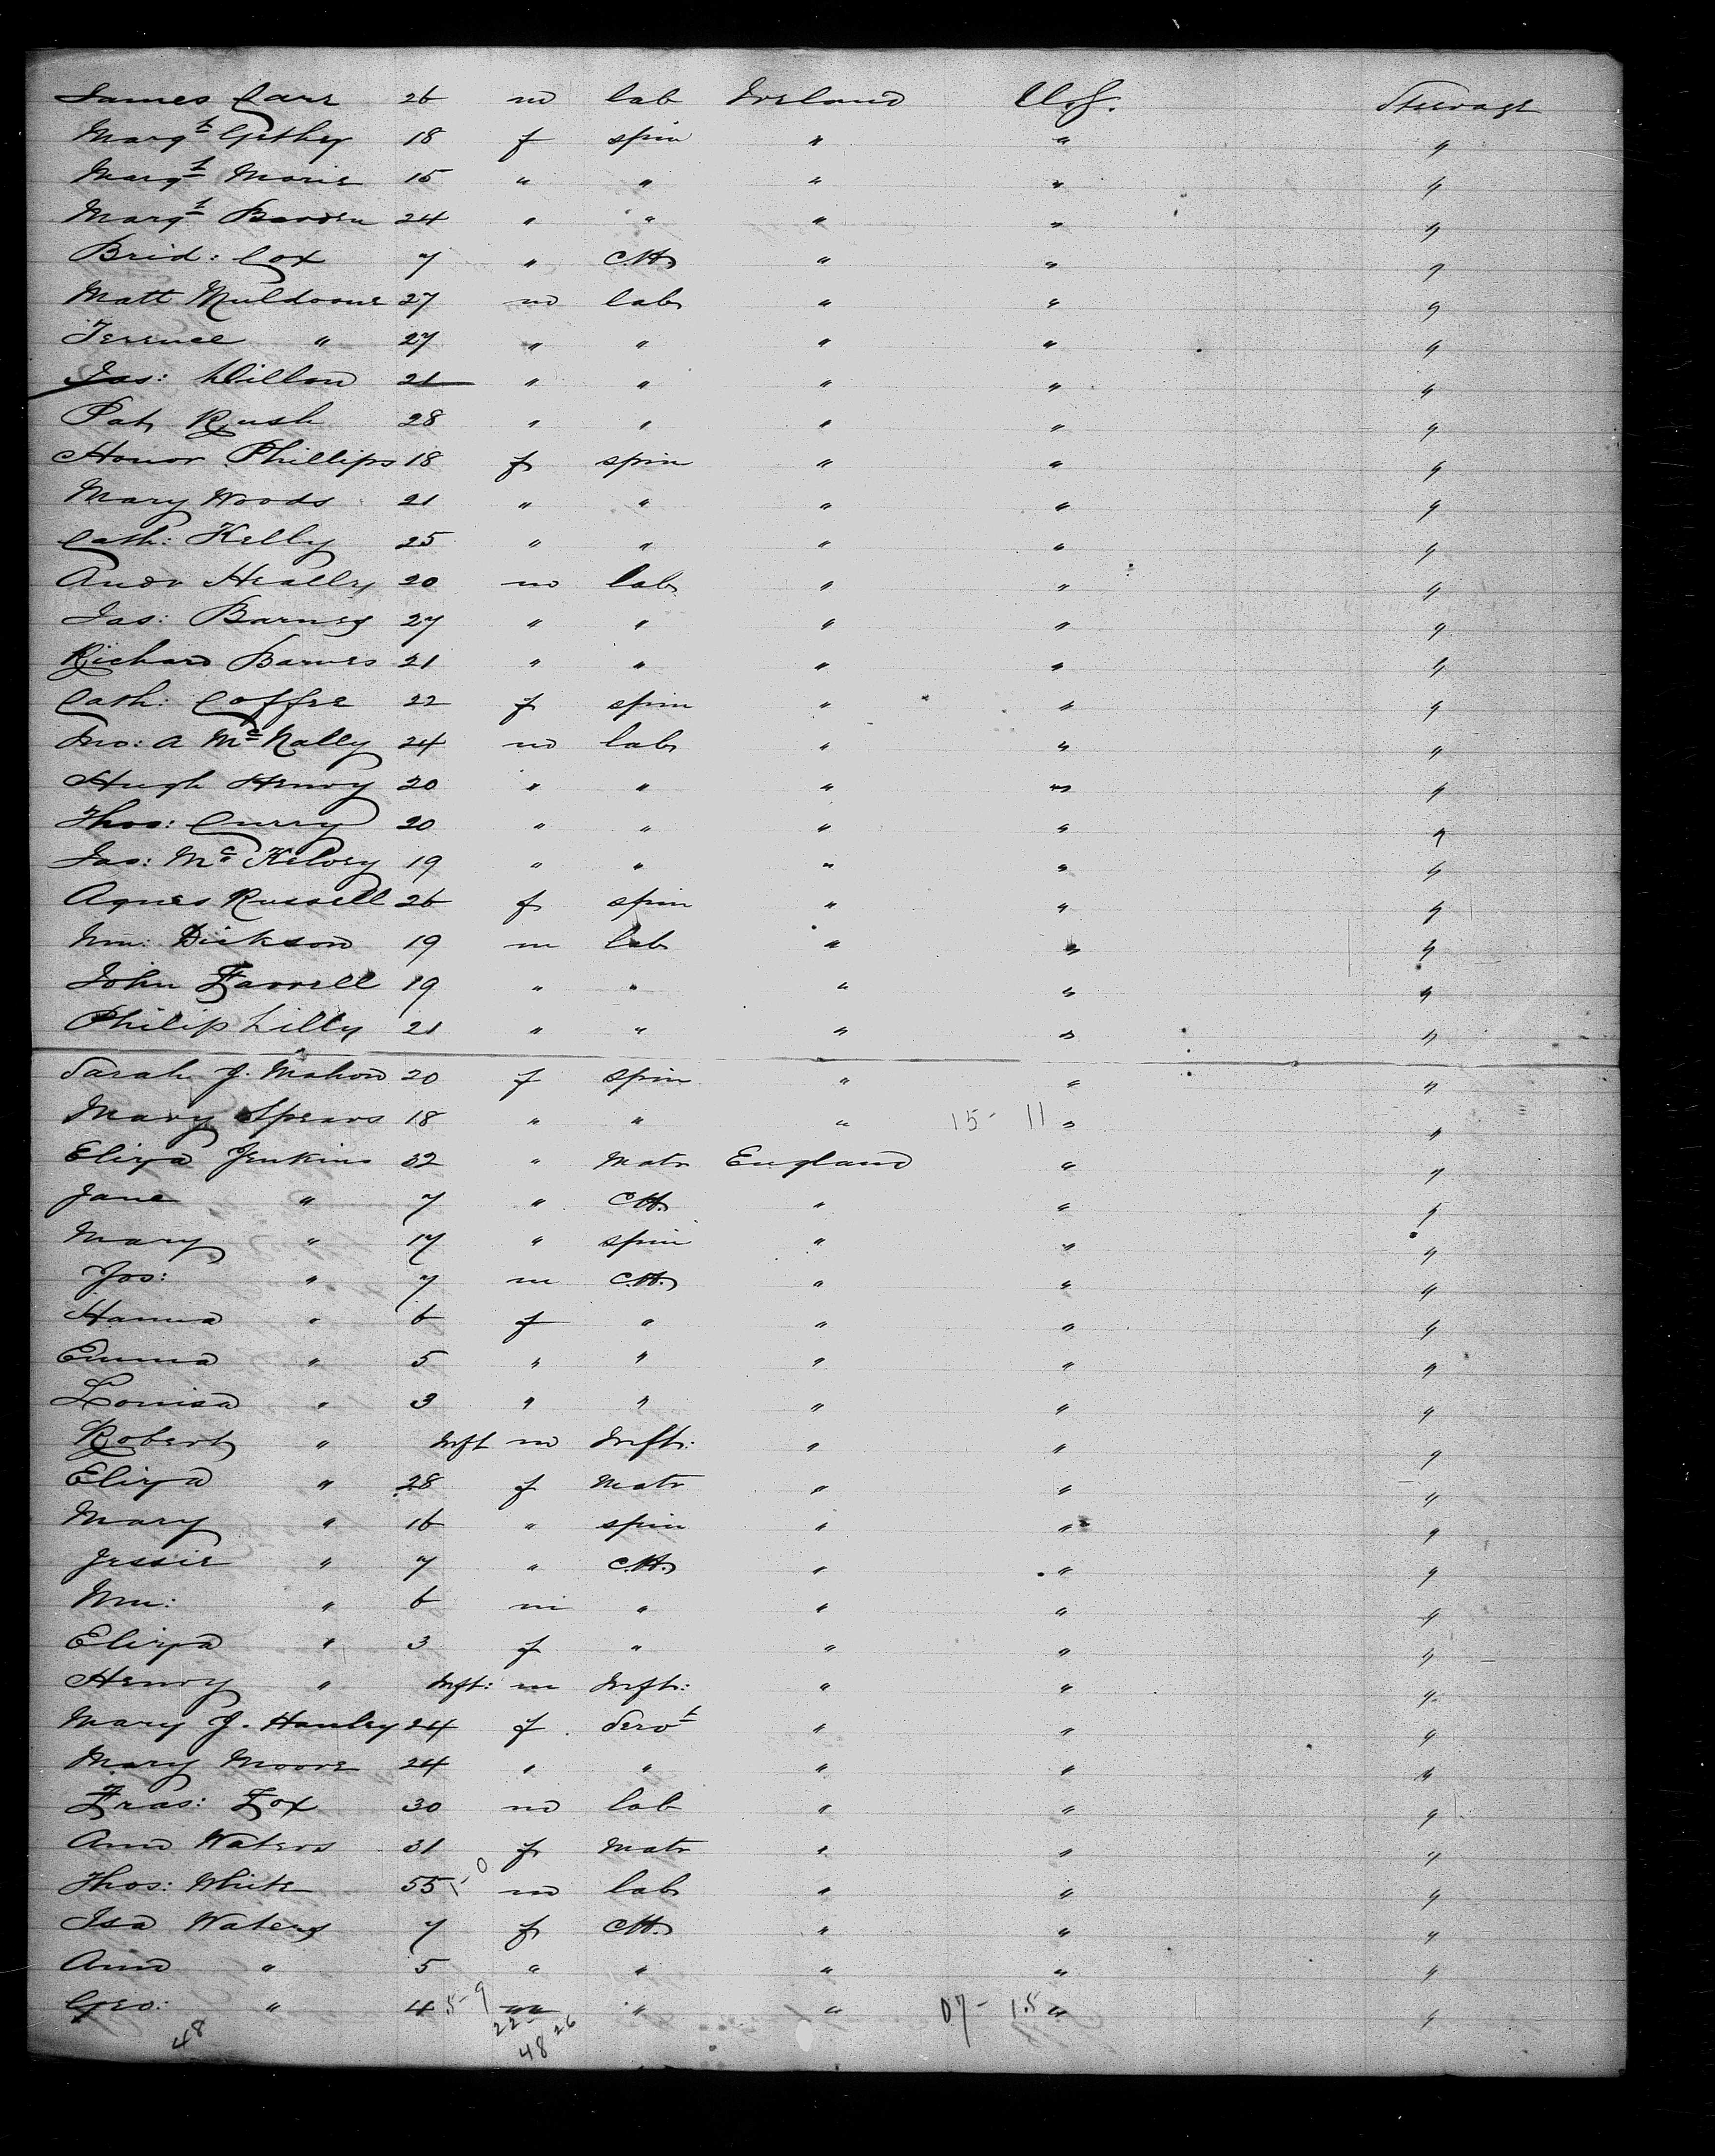 James Carr 26 m lab Ireland U.S. Steerage
Margt Gethy 18 f spin " " "
Margt Morie 15 " " " " "
Margt Barden 24 " " " " "
Brid: Cox 7 " Ch. " " "
Matt Muldoone 27 m lab " " "
Terence " 27 " " " " "
Jas: Dillon 21 " " " " "
Pat Rush 28 " " " " "
Honor Phillips 18 f spin " " "
Mary Woods 21 " " " " "
Cath: Kelly 25 " " " " "
Andr Healley 20 m lab " " "
Jas: Barnes 27 " " " " "
Richard Barnes 21 " " " " "
Cath: Coffee 22 f spin " " "
Jno: A McNally 24 m lab " " "
Hugh Henry 20 " " " " "
Thos: Curry 20 " " " " "
Jas: McKelvey 19 " " " " "
Agnes Russell 26 f spin " " "
Wm: Dickson 19 m lab " " "
John Farrell 19 " " " " "
Philip Lilly 21 " " " " "
Sarah J. Mahon 20 f spin " " "
Mary Spears 18 " " " 15- 11 " "
Eliza Jenkins 32 " Matr England " "
Jane " 7 " Ch. " " "
Mary " 17 " spin " " "
Jos: " 7 m Ch. " " "
Hanna " 6 f " " " "
Emma " 5 " " " " "
Louisa " 3 " " " " "
Robert " Inft m Inft: " " "
Eliza " 28 f Matr " " "
Mary " 16 " spin " " "
Jessie " 7 " Ch. " " "
Wm: " 6 m " " " "
Eliza " 3 f " " " "
Henry " Inft: m Inft: " " "
Mary J. Hanley 24 f Servt " " "
Mary Moore 24 " " " " "
Fras: Fox 30 m lab " " "
Ann Waters 31 f Matr " " "
Thos: White 55 m lab " " "
Isa Waters 7 f Ch. " " "
Ann " 5 " " " " "
Geo: " 4 5-9 m " " 07- 15 " "
48 22 26
48